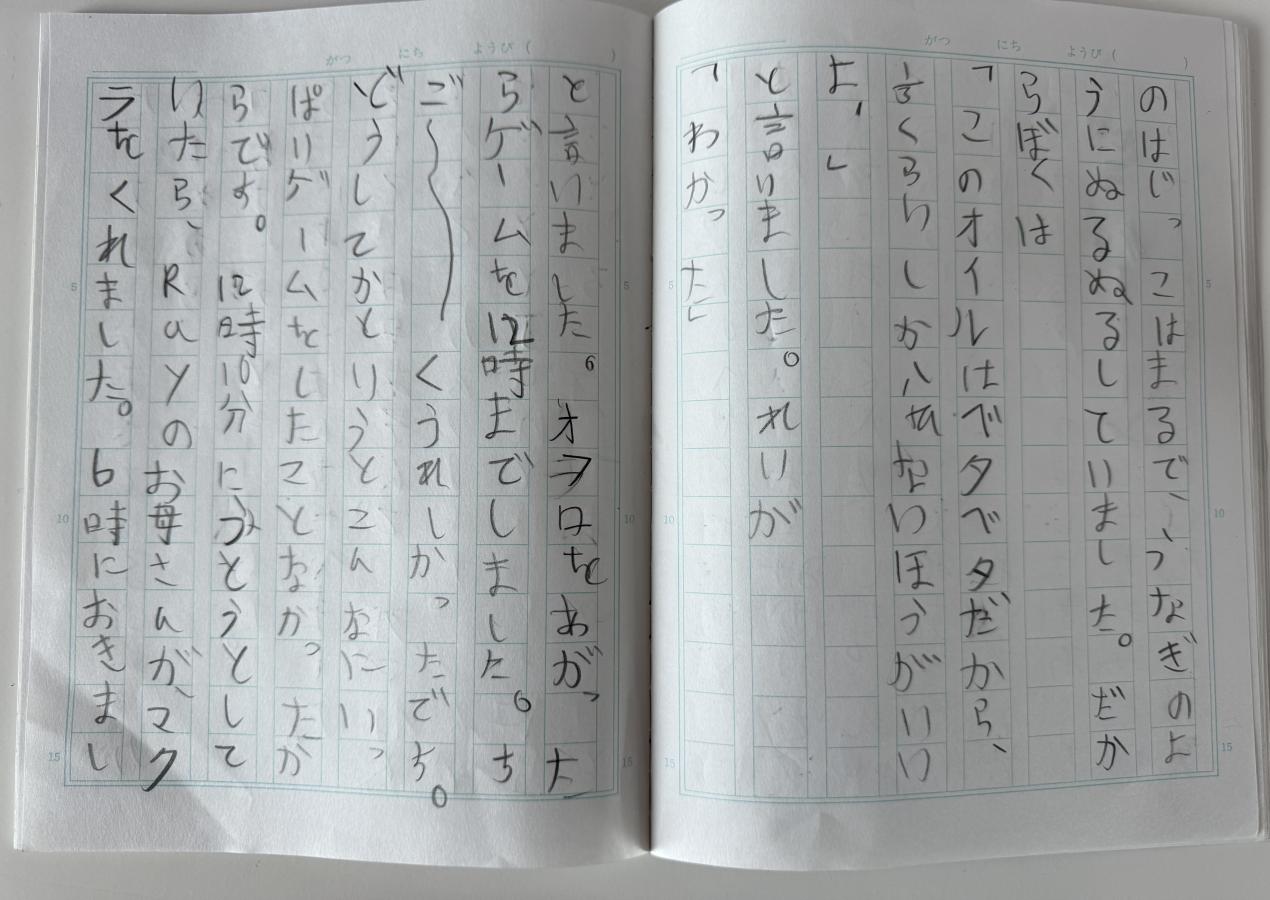 がつ にち ようび( )
のはじっこはまるで、うなぎのよ
うにぬるぬるしていました。だか
らぼくは
「このオイルはベタベタだから、
1/3くらいしかハれないほうがいい
よ。」
と言いました。れいが
「わかった」
がつ にち ようび( )
と言いました。オフロをあがった
らゲームを12時までしました。ち
ご〜くうれしかったでち。
どうしてかとりうとこんなにいっ
ぱりゲームをしたことなかったか
らでよ。12時10分にうとうとして
いたら、Rayのお母さんが、マク
ラをくれました。6時におきまし
5
10
15
5
10
15
5
10
15
5
10
15